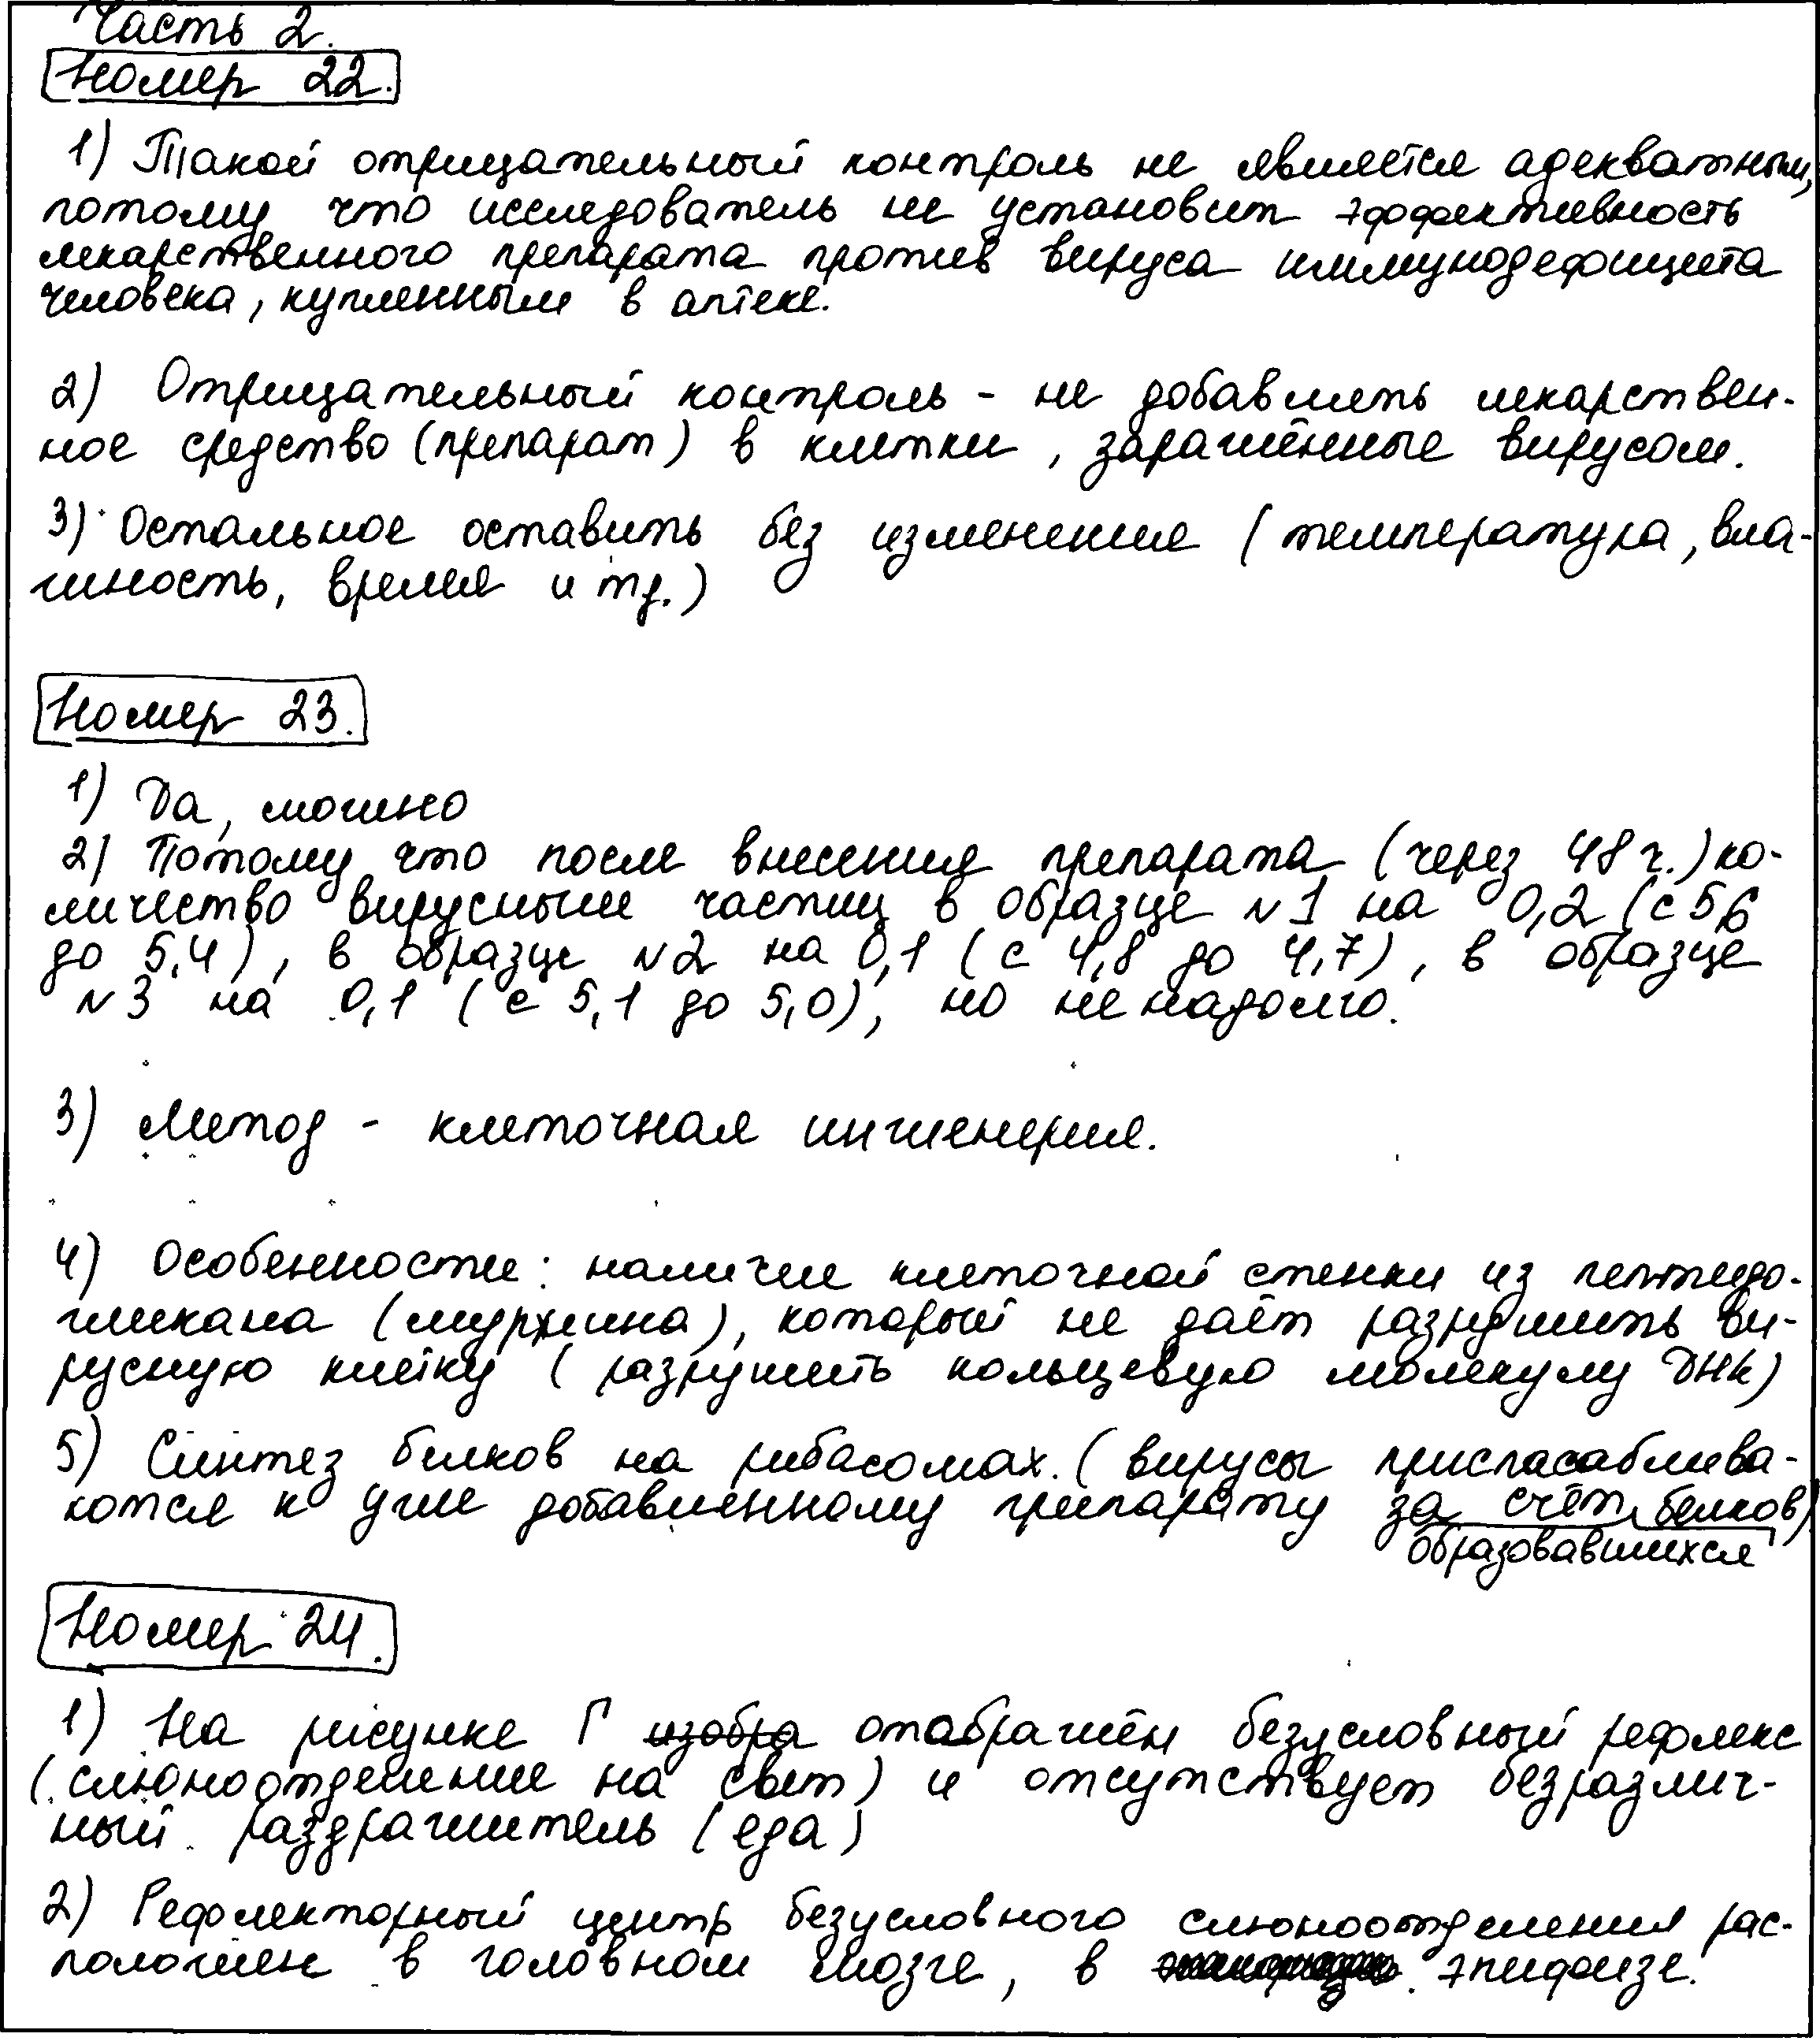 Часть 2.
Номер 22.
1) Такой отрицательный контроль не является адекватным,
потому что исследователь не установит эффективность
лекарственного препарата против вируса иммунодефицита
человека, купленным в аптеке.
2) Отрицательный контроль - не добавлять лекарствен-
ное средство (препарат) в клетки, заражённые вирусом.
3) Остальное оставить без изменения (температура, вла-
жность, время и тд.)
Номер 23.
1) Да, можно
2) Потому что после внесения препарата (через 48 ч.) ко-
личество вирусных частиц в образце №1 на 0,2 (с 5,6
до 5,4), в образце №2 на 0,1 (с 4,8 до 4,7), в образце
№3 на 0,1 (с 5,1 до 5,0), но не надолго.
3) Метод - клеточная инженерия.
4) Особенности: наличие клеточной стенки из пептидо-
гликана (муреина), который не даёт разрушить ви-
русную клетку (разрушить кольцевую молекулу ДНК)
5) Синтез белков на рибасомах. (вирусы приспасаблива-
ются к уже добавленному препарату за счёт белков)
образовавшихся
Номер 24.
1) На рисунке Г изобра отабражён безусловный рефлекс
(слюноотделение на свет) и отсутствует безразлич-
ный раздражитель (еда)
2) Рефлекторный центр безусловного слюноотделения рас-
положен в головном мозге, в эпифизе.